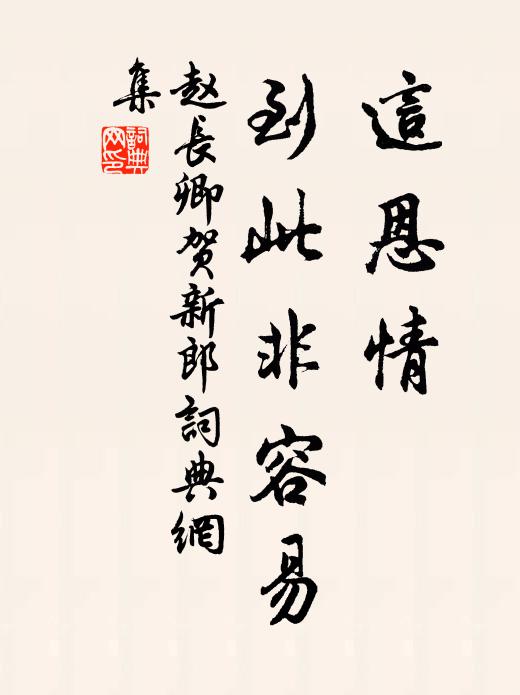 這恩情
到此非容易
赵長卿贺新郎詞典網
集
詞典
网印